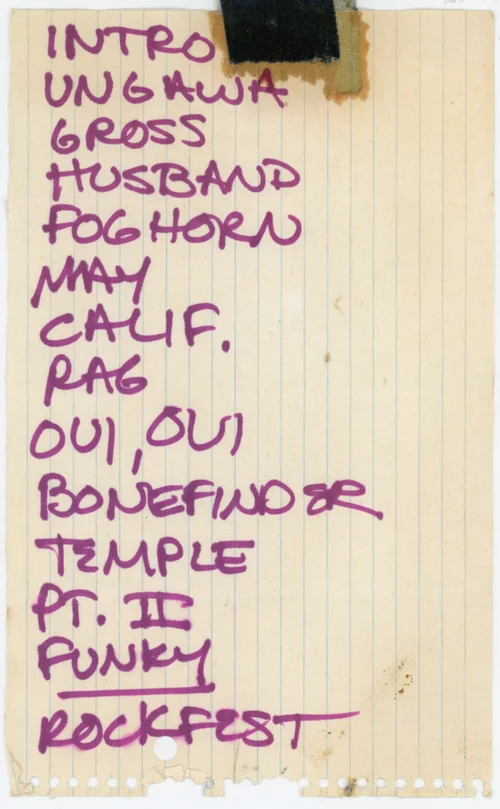 INTRO
UNGAWA
GROSS
HUSBAND
FOGHORN
MAY
CALIF.
RAG
OUI, OUI
BONEFINDER
TEMPLE
PT. II
FUNKY
ROCKFEST